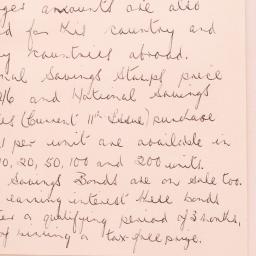 ger amounts are also
d for this country and
y countries abroad.
nal Savings Stamps price
2/6 and National Savings
es (Current 11th Issue) purchase
1 per unit are available in
10, 20, 50, 100 and 200 units.
Savings Bonds are on sale too.
earning interest these bonds
ter a qualifying period of 3 months,
of winning a tax-free prize.